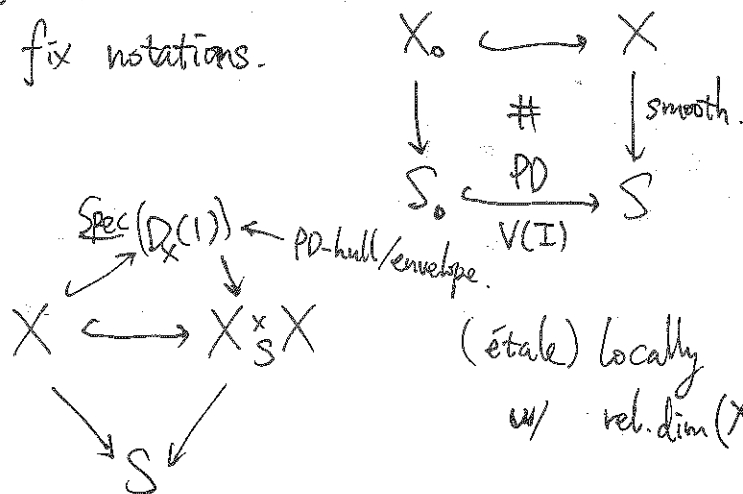 fix notations.
X₀ ↪ X
# smooth.
PD
S₀ ↪ S
V(I)
Spec(D_X(1)) ← PD-hull/envelope.
X ↪ X ×_S X
S
(étale) locally
w/ rel.dim(X